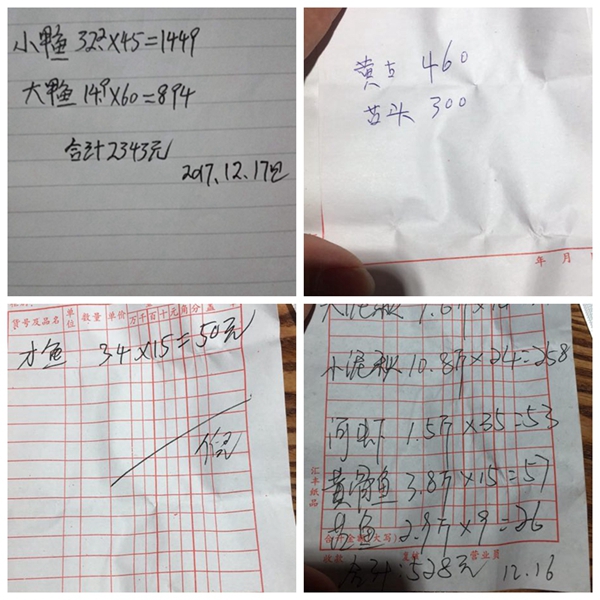 小鸭 32.2×45=1449
大鸭 14.9×60=894
合计2343元
2017.12.17日
黄古 460
苦头 300
年 月
货号及品名 单位 数量 单价 万千百十元角分
才鱼 34×15=50元
小泥秋 10.8斤×24=258
河虾 1.5斤×35=53
黄骨鱼 3.8斤×15=57
2.9斤×9=26
合计:528元 12.16
汇丰纸品
营业员